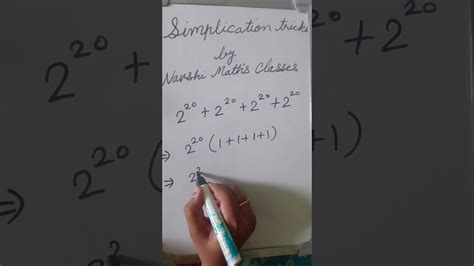 Simplication tricks
by
Navshi Math's Classes
2²⁰ + 2²⁰ + 2²⁰ + 2²⁰
⇒ 2²⁰ (1+1+1+1)
⇒ 2²